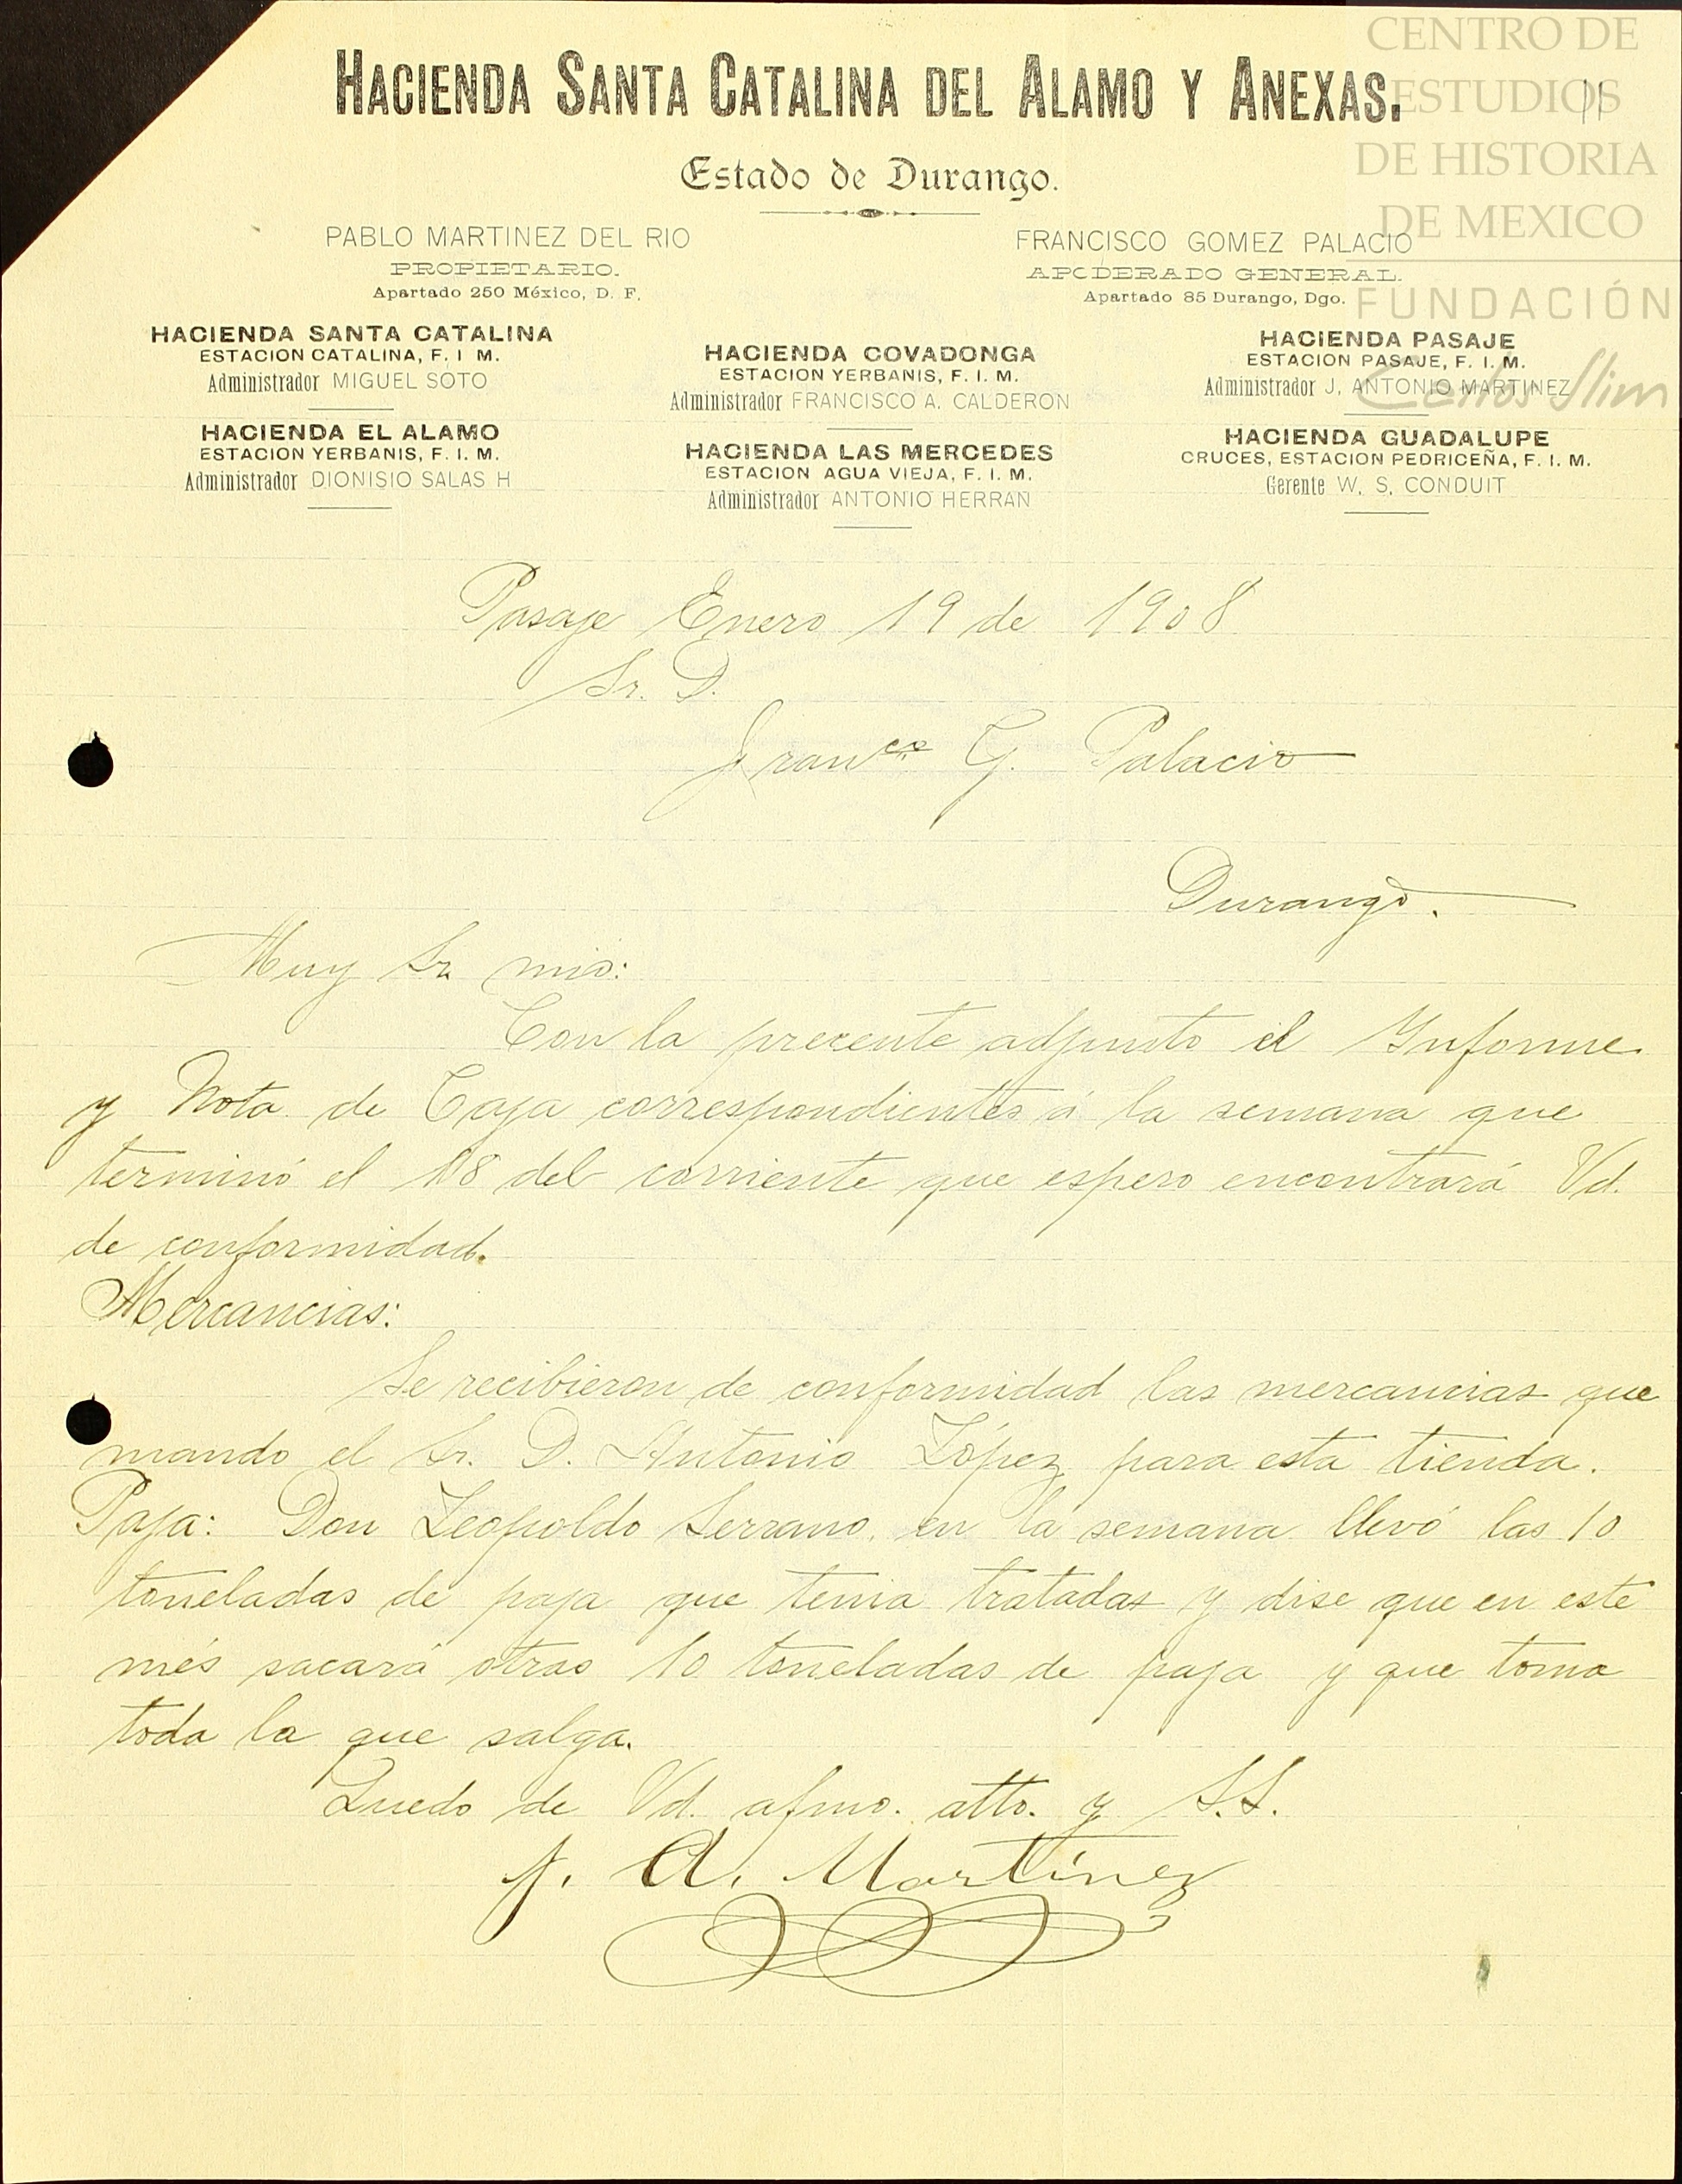 HACIENDA SANTA CATALINA DEL ALAMO Y ANEXAS.
Estado de Durango.
PABLO MARTINEZ DEL RIO
PROPIETARIO.
Apartado 250 México, D. F.
FRANCISCO GOMEZ PALACIO
APODERADO GENERAL.
Apartado 85 Durango, Dgo.
HACIENDA SANTA CATALINA
ESTACION CATALINA, F. I M.
Administrador MIGUEL SOTO
HACIENDA EL ALAMO
ESTACION YERBANIS, F. I. M.
Administrador DIONISIO SALAS H
HACIENDA COVADONGA
ESTACION YERBANIS, F. I. M.
Administrador FRANCISCO A. CALDERON
HACIENDA LAS MERCEDES
ESTACION AGUA VIEJA, F. I. M.
Administrador ANTONIO HERRAN
HACIENDA PASAJE
ESTACION PASAJE, F. I. M.
Administrador J. ANTONIO MARTINEZ
HACIENDA GUADALUPE
CRUCES, ESTACION PEDRICEÑA, F. I. M.
Gerente W. S. CONDUIT
CENTRO DE
ESTUDIOS
DE HISTORIA
DE MEXICO
FUNDACIÓN
Carlos Slim
11
Pasaje Enero 19 de 1908
Sr. D.
Franco G. Palacio
Durango.
Muy Sr mio:
Con la precente adjunto el Informe
y Nota de Caja correspondientes á la semana que
terminó el 18 del corriente que espero encontrará Vd.
de conformidad.
Mercancias:
Se recibieron de conformidad las mercancias que
mando el Sr. D. Antonio López para esta tienda.
Paja: Don Leopoldo Serrano, en la semana llevó las 10
toneladas de paja que tenia tratadas y dise que en este
més sacará otras 10 toneladas de paja y que toma
toda la que salga.
Quedo de Vd. afmo. atto. y S.S.
J. A. Martínez